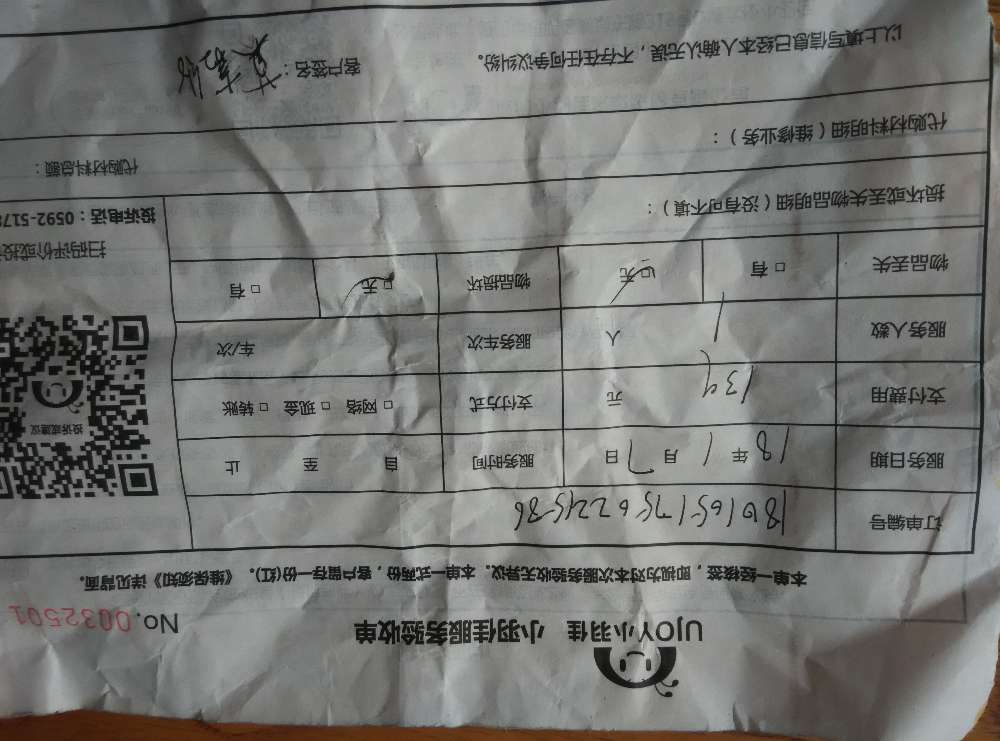 UJOY小羽佳 小羽佳服务验收单
No.0032501
本单一经接签，即视为对本次服务验收无异议。本单一式两份，客户留存一份(红)。《维保须知》详见背面。
订单编号
服务日期 18 年 1 月 7 日 服务时间 自 至 止
支付费用 134 元 支付方式 □ 网络 □ 现金 □ 转账
投诉或建议
服务人数 1 人 服务车次 车/次
物品丢失 □ 有 □ 无 物品损坏 □ 无 □ 有
扫码评价或投
投诉电话：0592-517
损坏或丢失物品明细（没有可不填）：
代购材料明细（维修业务）： 代购材料总额：
以上填写信息已经本人确认无误，不存在任何争议纠纷。 客户签名：